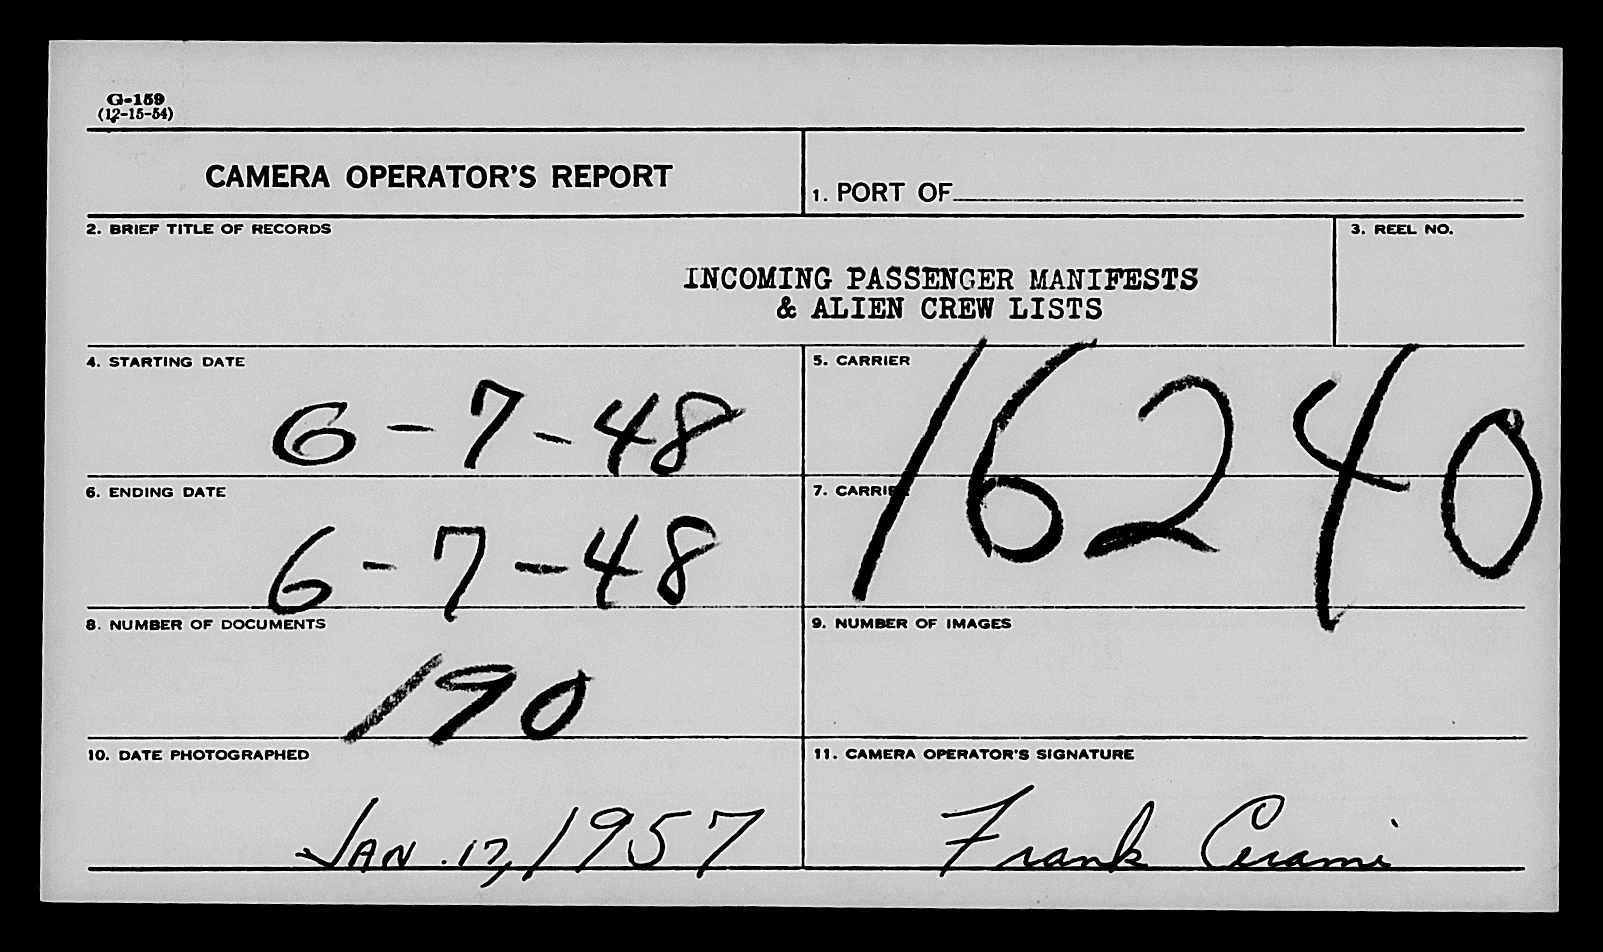 G-159
(12-15-54)
CAMERA OPERATOR'S REPORT
1. PORT OF
2. BRIEF TITLE OF RECORDS
3. REEL NO.
INCOMING PASSENGER MANIFESTS
& ALIEN CREW LISTS
4. STARTING DATE
6-7-48
5. CARRIER
16240
6. ENDING DATE
6-7-48
7. CARRIER
8. NUMBER OF DOCUMENTS
190
9. NUMBER OF IMAGES
10. DATE PHOTOGRAPHED
JAN. 17, 1957
11. CAMERA OPERATOR'S SIGNATURE
Frank Cerami